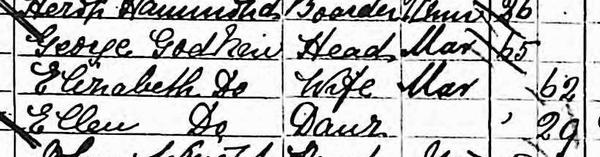 Hammonds Boarder Unm 36
George Godkin Head Mar 65
Elizabeth Do Wife Mar 62
Ellen Do Daur ' 29